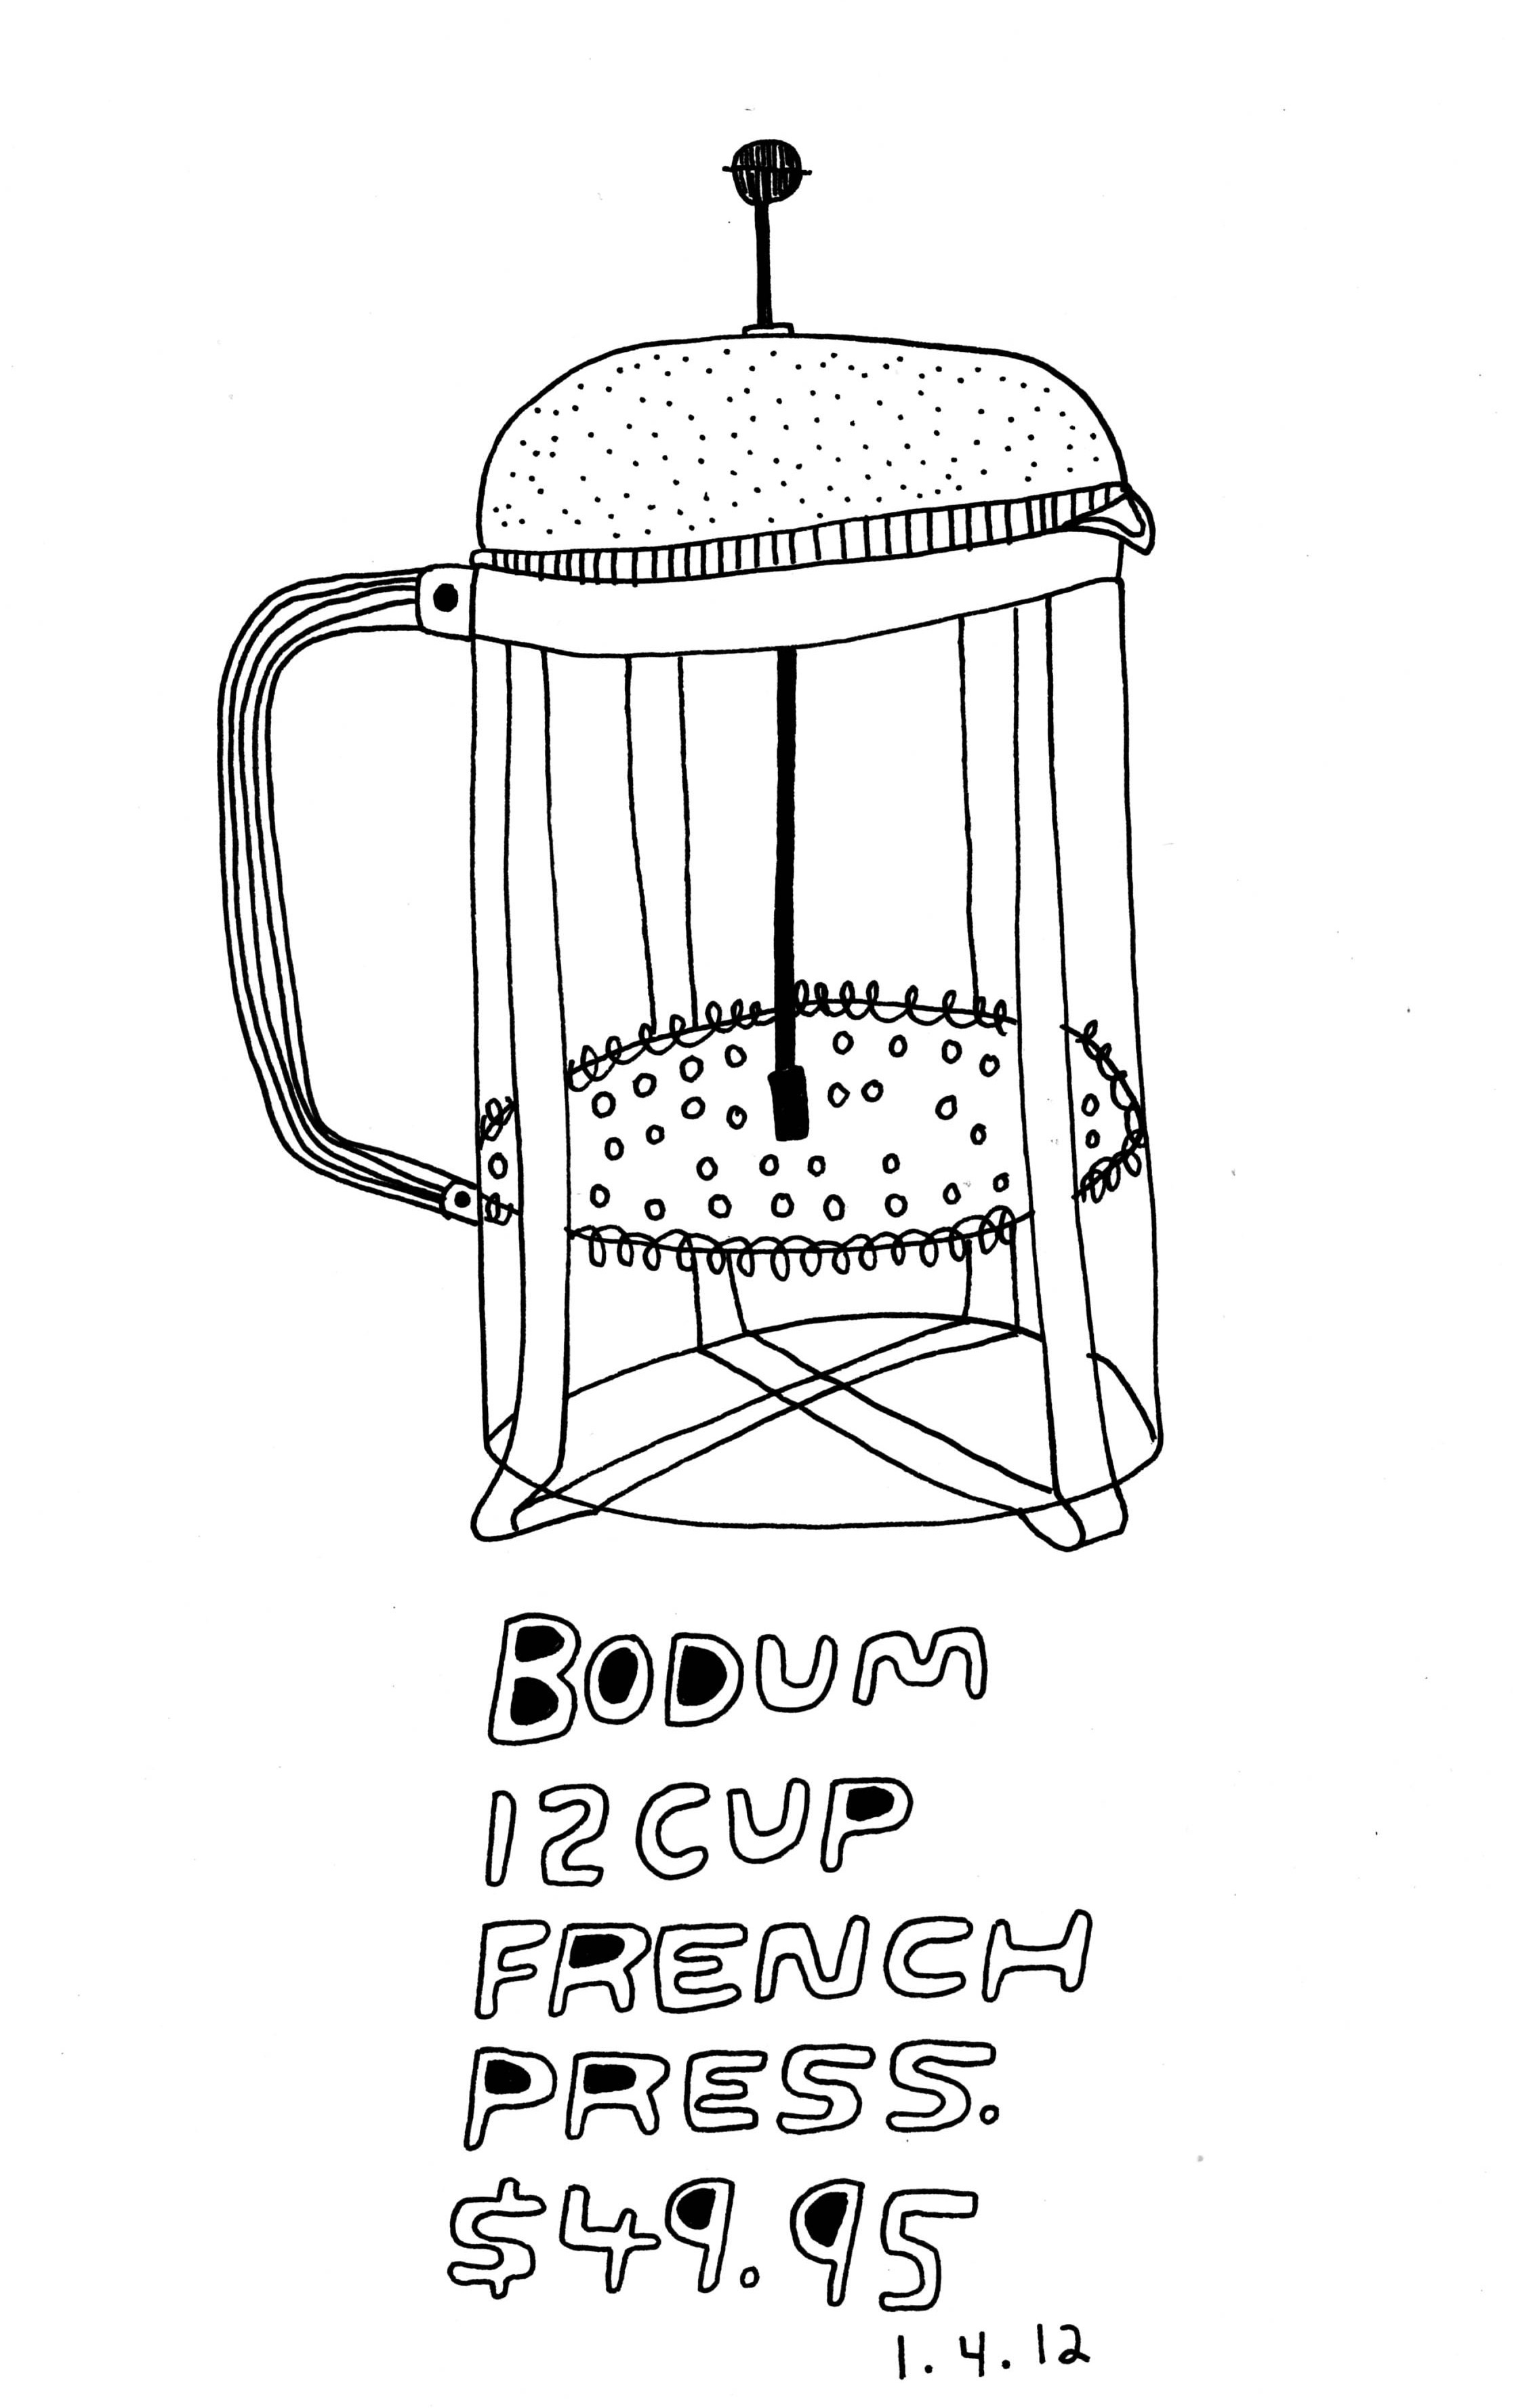 BODUM
12 CUP
FRENCH
PRESS.
$49.95
1.4.12